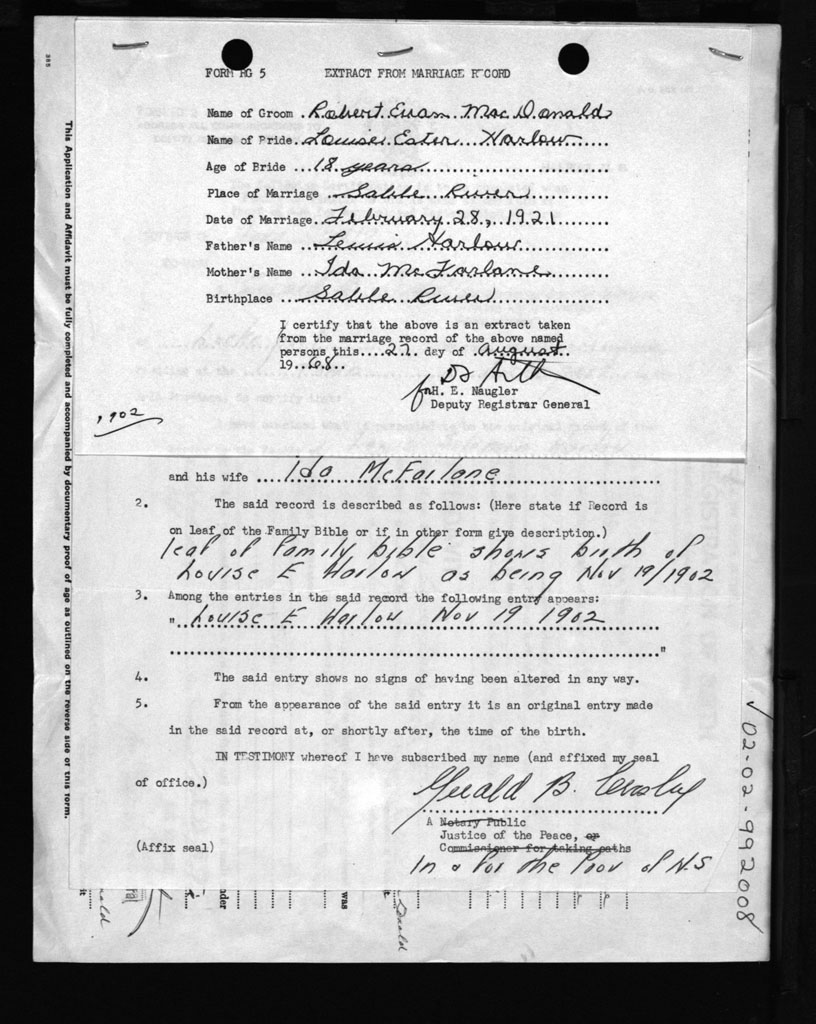 FORM RG 5 EXTRACT FROM MARRIAGE RECORD
Name of Groom . Robert Euan MacDonald
Name of Bride . Louise Ester Harlow
Age of Bride . . . 18 years
Place of Marriage . . Sable River
Date of Marriage . February 28, 1921
Father's Name . . . Harlow
Mother's Name . . Ida McFarlane
Birthplace . . . Sable River
I certify that the above is an extract taken
from the marriage record of the above named
persons this....27. day of .August.
19..68..
for H. E. Naugler
Deputy Registrar General
1902
and his wife ....Ida McFarlane
2. The said record is described as follows: (Here state if Record is
on leaf of the Family Bible or if in other form give description.)
leaf of Family bible shows birth of
Louise E Harlow as being Nov 19/1902
3. Among the entries in the said record the following entry appears:
"...Louise E Harlow Nov 19 1902
"
4. The said entry shows no signs of having been altered in any way.
5. From the appearance of the said entry it is an original entry made
in the said record at, or shortly after, the time of the birth.
IN TESTIMONY whereof I have subscribed my name (and affixed my seal
of office.)
Gerald B. Crosby
A Notary Public
Justice of the Peace, or
(Affix seal) Commissioner for taking oaths
In & For the Prov of N.S
This Application and Affidavit must be fully completed and accompanied by documentary proof of age as outlined on the reverse side of this form.
02-02-992008
was
it